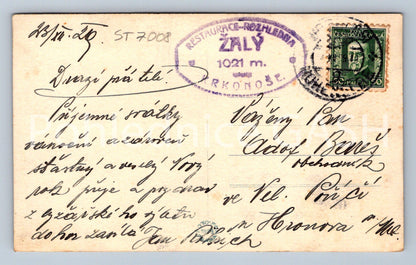 23/XII 29
ST 7008
RESTAURACE-ROZHLEDNA
ŽALÝ
1021 m.
KRKONOŠE.
Drazí přátelé!
Příjemné svátky
vánoční a zároveň
šťastný a veselý Nový
rok přeje a pozdrav
z lyžařského výletu
do hor zasílá Jan
Vážený Pan
Adolf Beneš
obchodník
ve Vel. Poříčí
u Hronova n/Met.